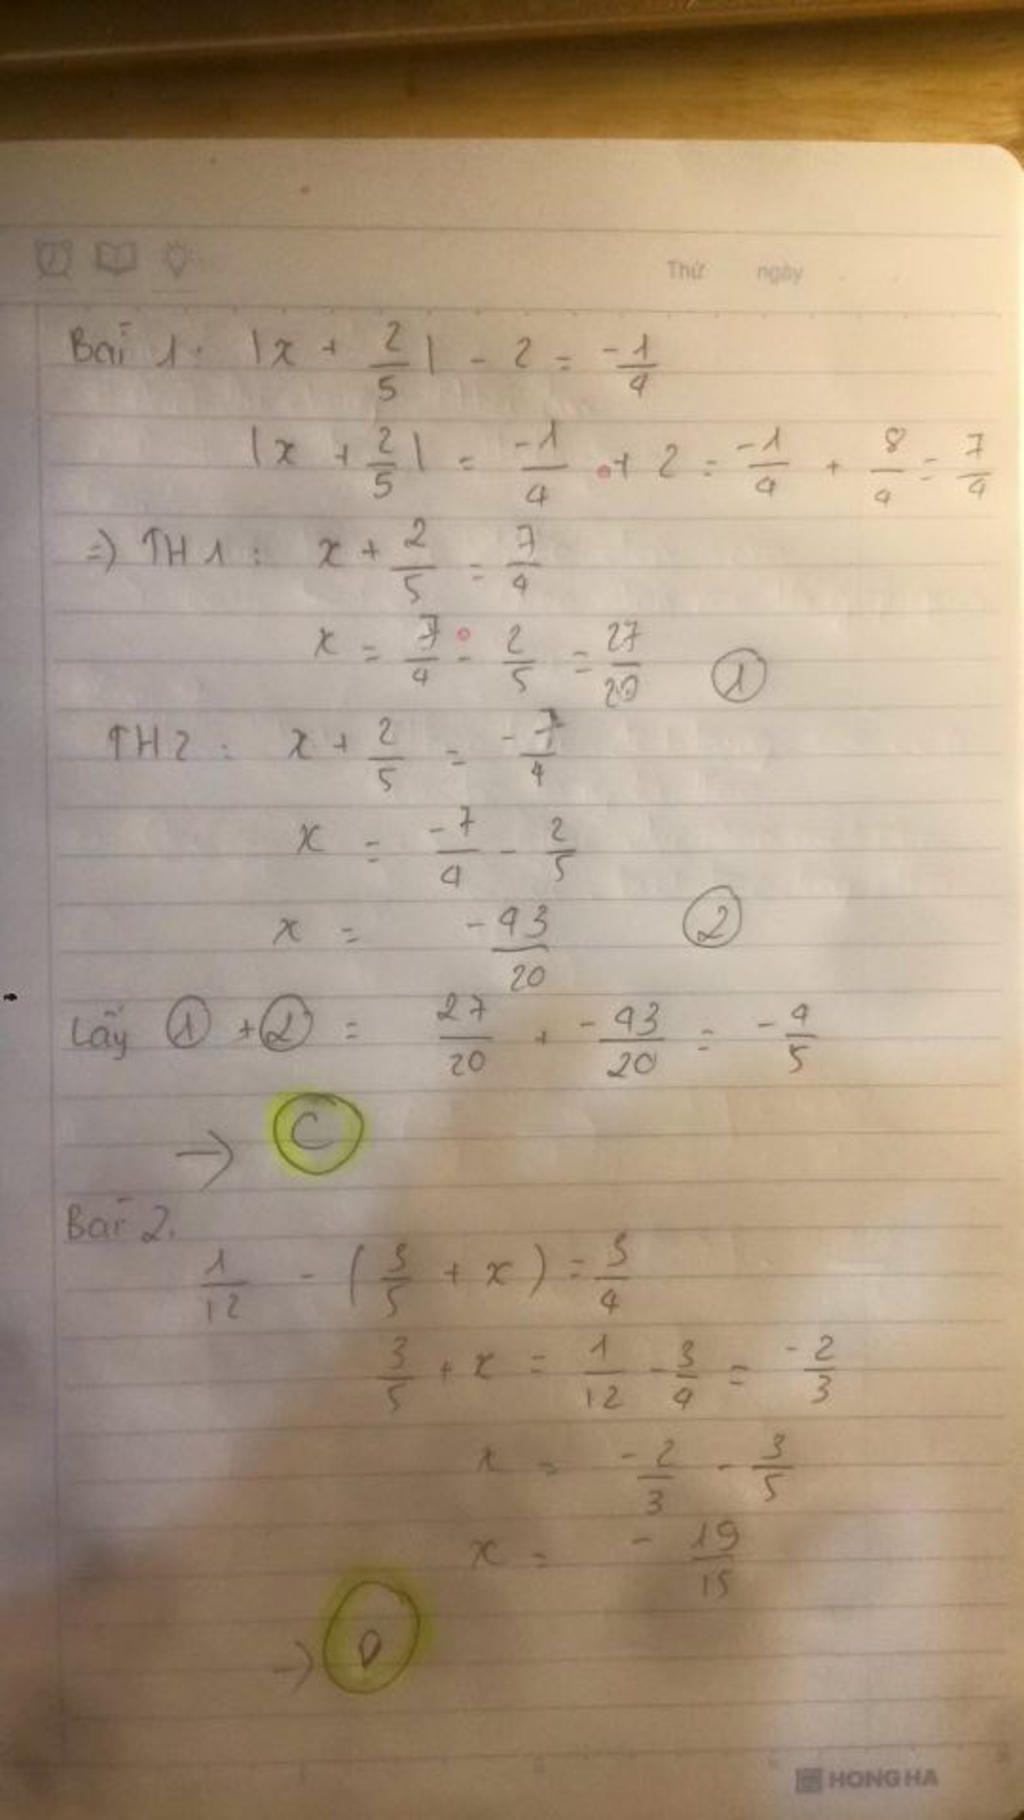 Thứ ngày
Bài 1: |x + 2/5| - 2 = -1/4
|x + 2/5| = -1/4 + 2 = -1/4 + 8/4 = 7/4
=> TH1: x + 2/5 = 7/4
x = 7/4 - 2/5 = 27/20 ①
TH2: x + 2/5 = -7/4
x = -7/4 - 2/5
x = -43/20 ②
Lấy ① + ② = 27/20 + -43/20 = -4/5
→ C
Bài 2.
1/12 - (3/5 + x) = 3/4
3/5 + x = 1/12 - 3/4 = -2/3
x = -2/3 - 3/5
x = -19/15
→ D
HONG HA